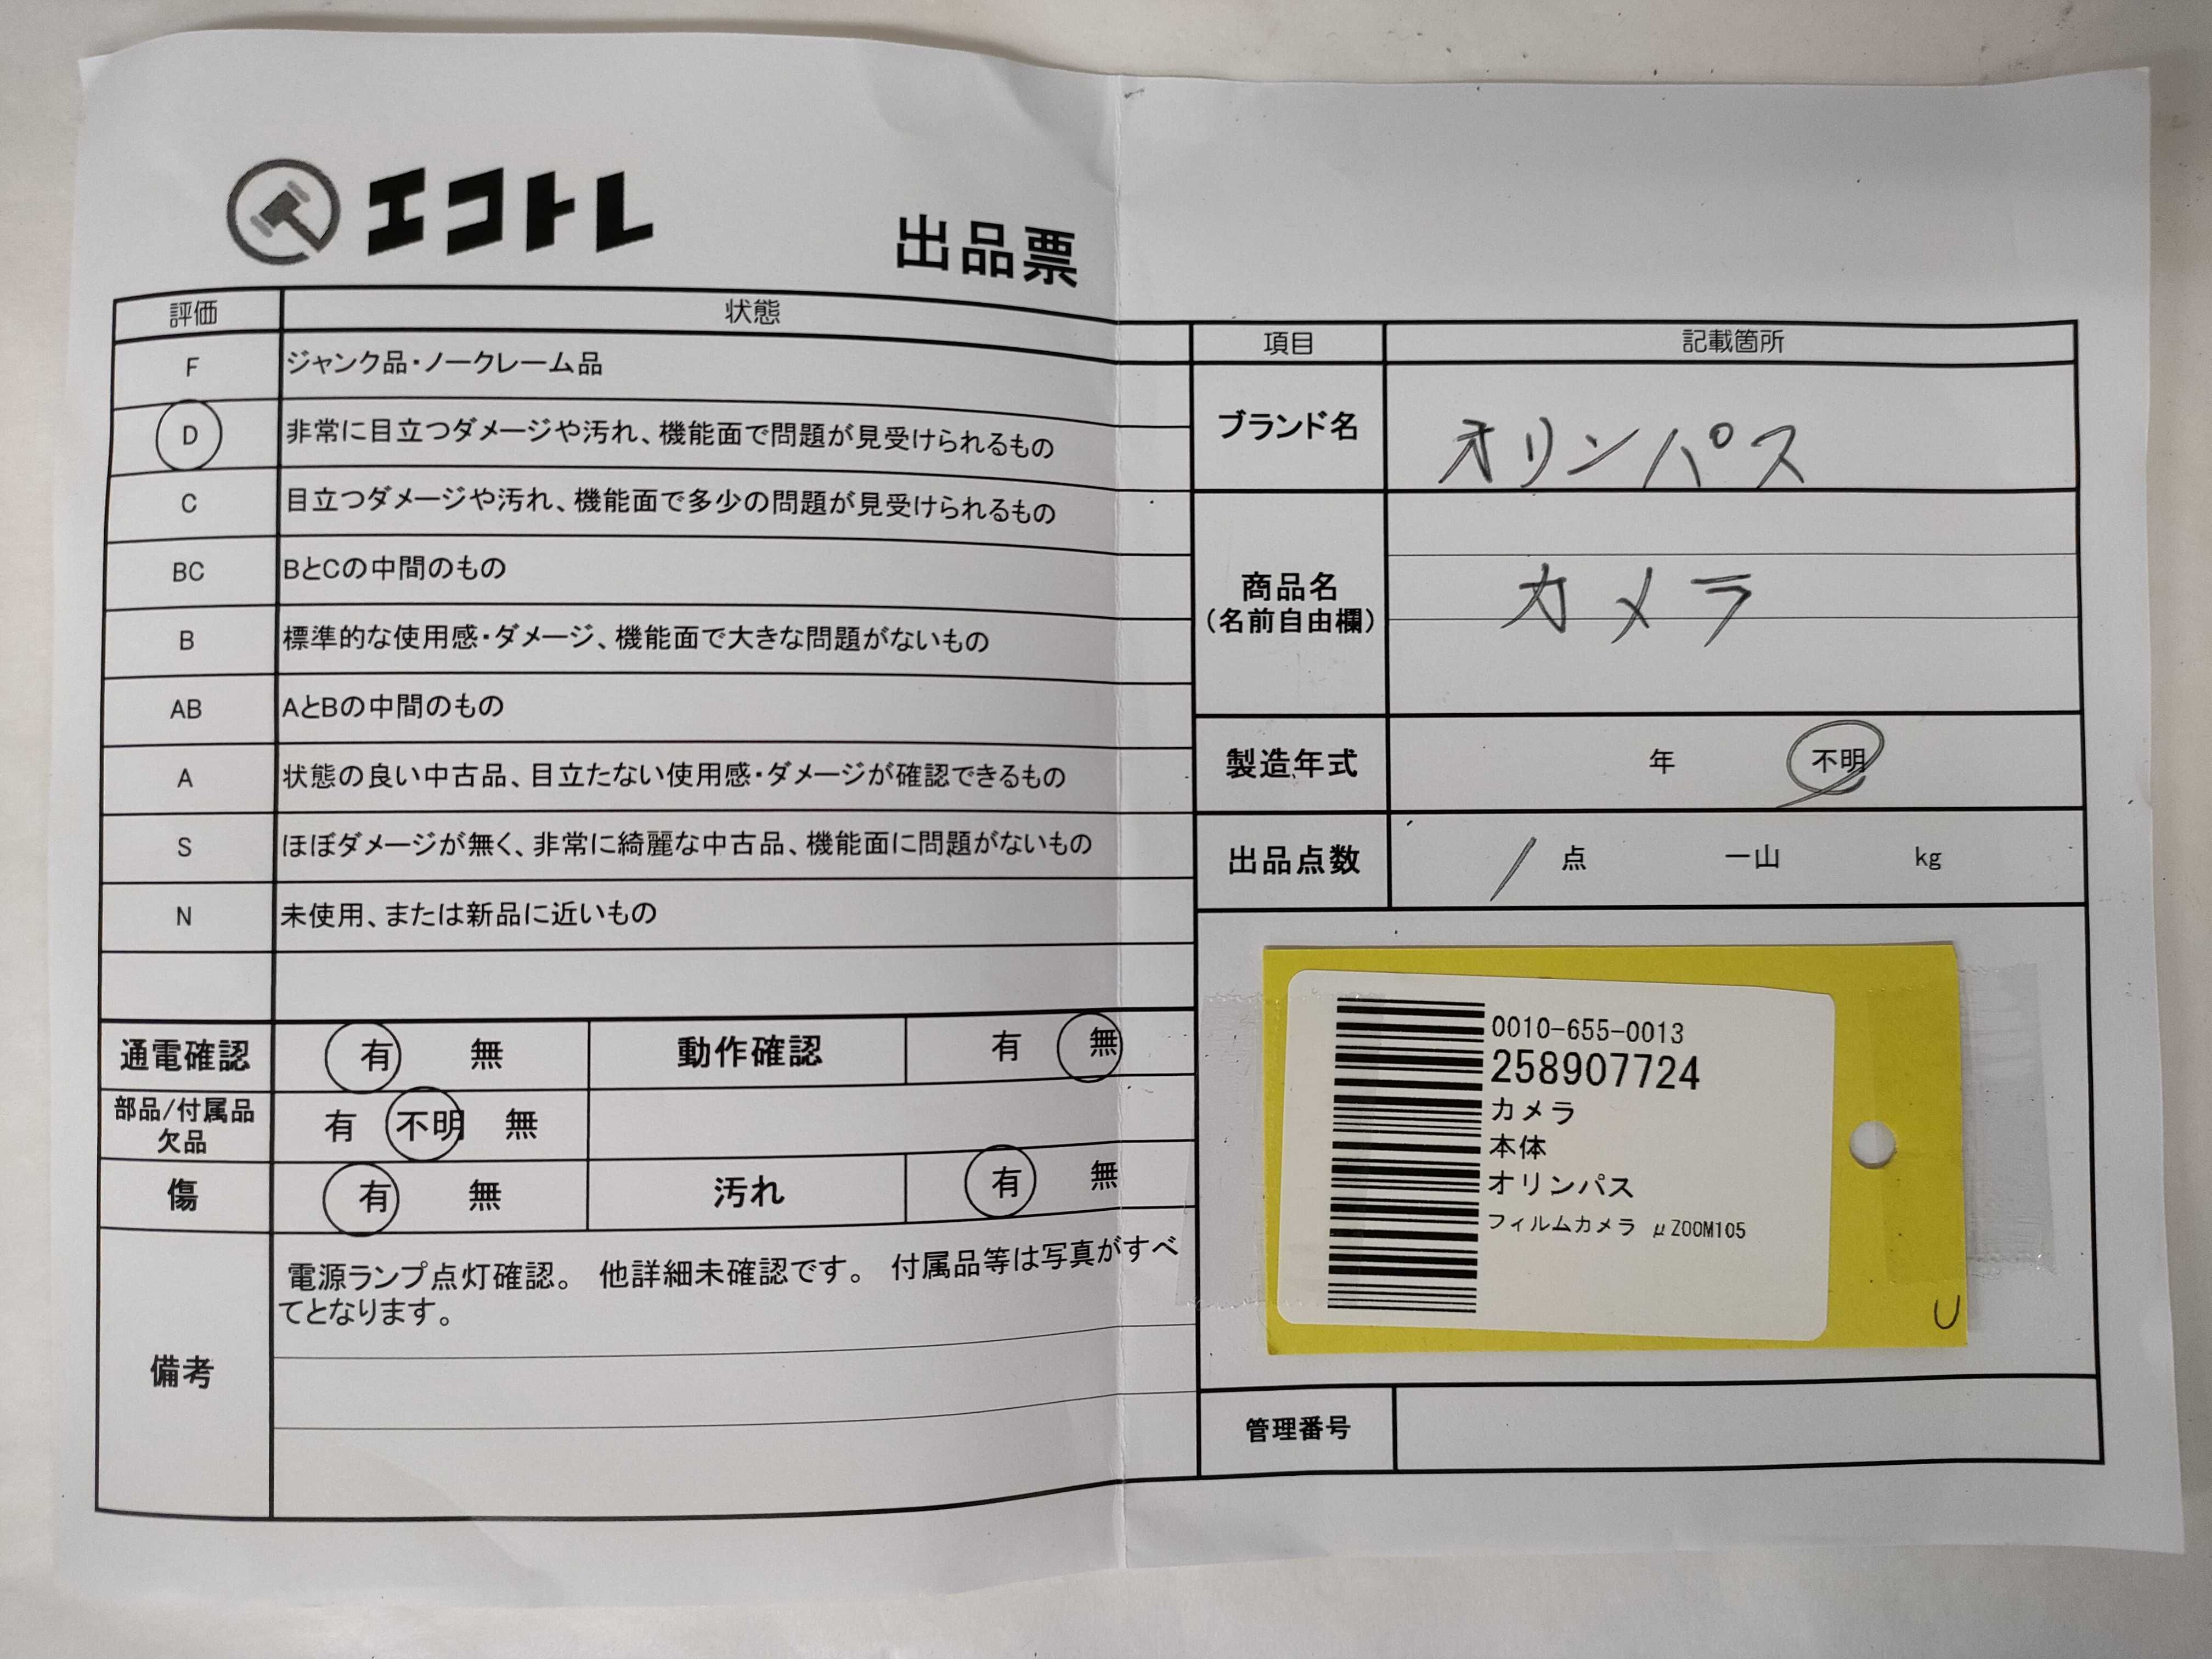 エコトレ
出品票
評価 状態
F ジャンク品・ノークレーム品
D 非常に目立つダメージや汚れ、機能面で問題が見受けられるもの
C 目立つダメージや汚れ、機能面で多少の問題が見受けられるもの
BC BとCの中間のもの
B 標準的な使用感・ダメージ、機能面で大きな問題がないもの
AB AとBの中間のもの
A 状態の良い中古品、目立たない使用感・ダメージが確認できるもの
S ほぼダメージが無く、非常に綺麗な中古品、機能面に問題がないもの
N 未使用、または新品に近いもの
通電確認 有 無 動作確認 有 無
部品/付属品
欠品 有 不明 無
傷 有 無 汚れ 有 無
備考
電源ランプ点灯確認。 他詳細未確認です。 付属品等は写真がすべ
てとなります。
項目 記載箇所
ブランド名 オリンパス
商品名
(名前自由欄)
カメラ
製造年式 年 不明
出品点数 1 点 一山 kg
0010-655-0013
258907724
カメラ
本体
オリンパス
フィルムカメラ μZOOM105
U
管理番号